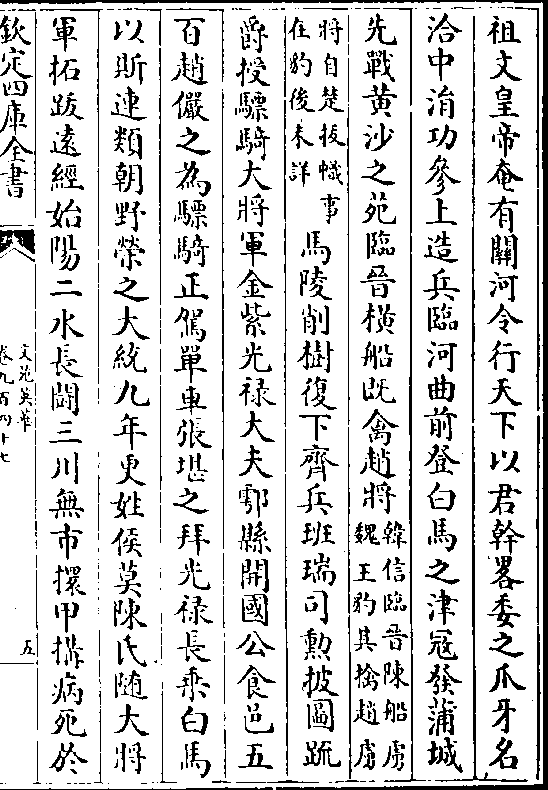 祖文皇帝奄有關河令行天下以君幹畧委之爪牙名
洽中涓功參上造兵臨河曲前登白馬之津冠發蒲城
先戰黄沙之苑臨晉横船既禽趙將韓信臨晉陳船虜魏王豹其擒趙虜
將自楚拔幟事在豹後未詳馬陵削樹復下齊兵班瑞司勲披圖䟽
爵授驃騎大將軍金紫光禄大夫鄠縣開國公食邑五
百趙儼之為驃騎正駕單車張堪之拜光禄長乘白馬
以斯連類朝野榮之大統九年更姓侯莫陳氏随大將
軍拓跋逺經始陽二水長鬭三川無市擐甲搆病死於
欽定四庫全書
文苑英華
卷九百四十七
五